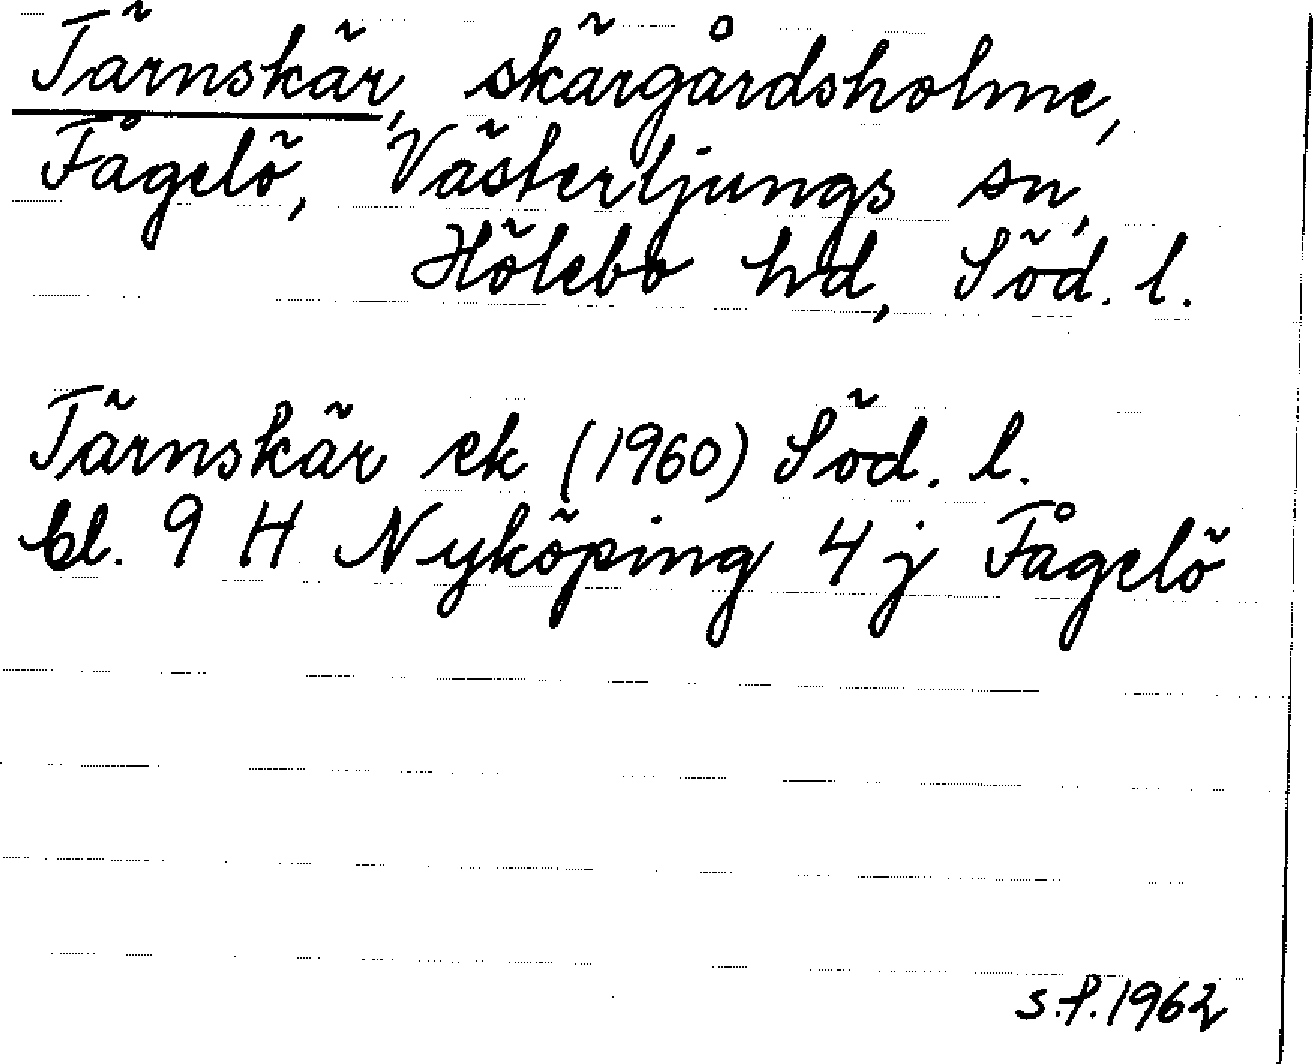 Tärnskär, skärgårdsholme,
Fågelö, Västerljungs sn,
Hölebo hd, Söd. l.
Tärnskär ek (1960) Söd. l.
bl. 9 H Nyköping 4 j Fågelö
s.f. 1962